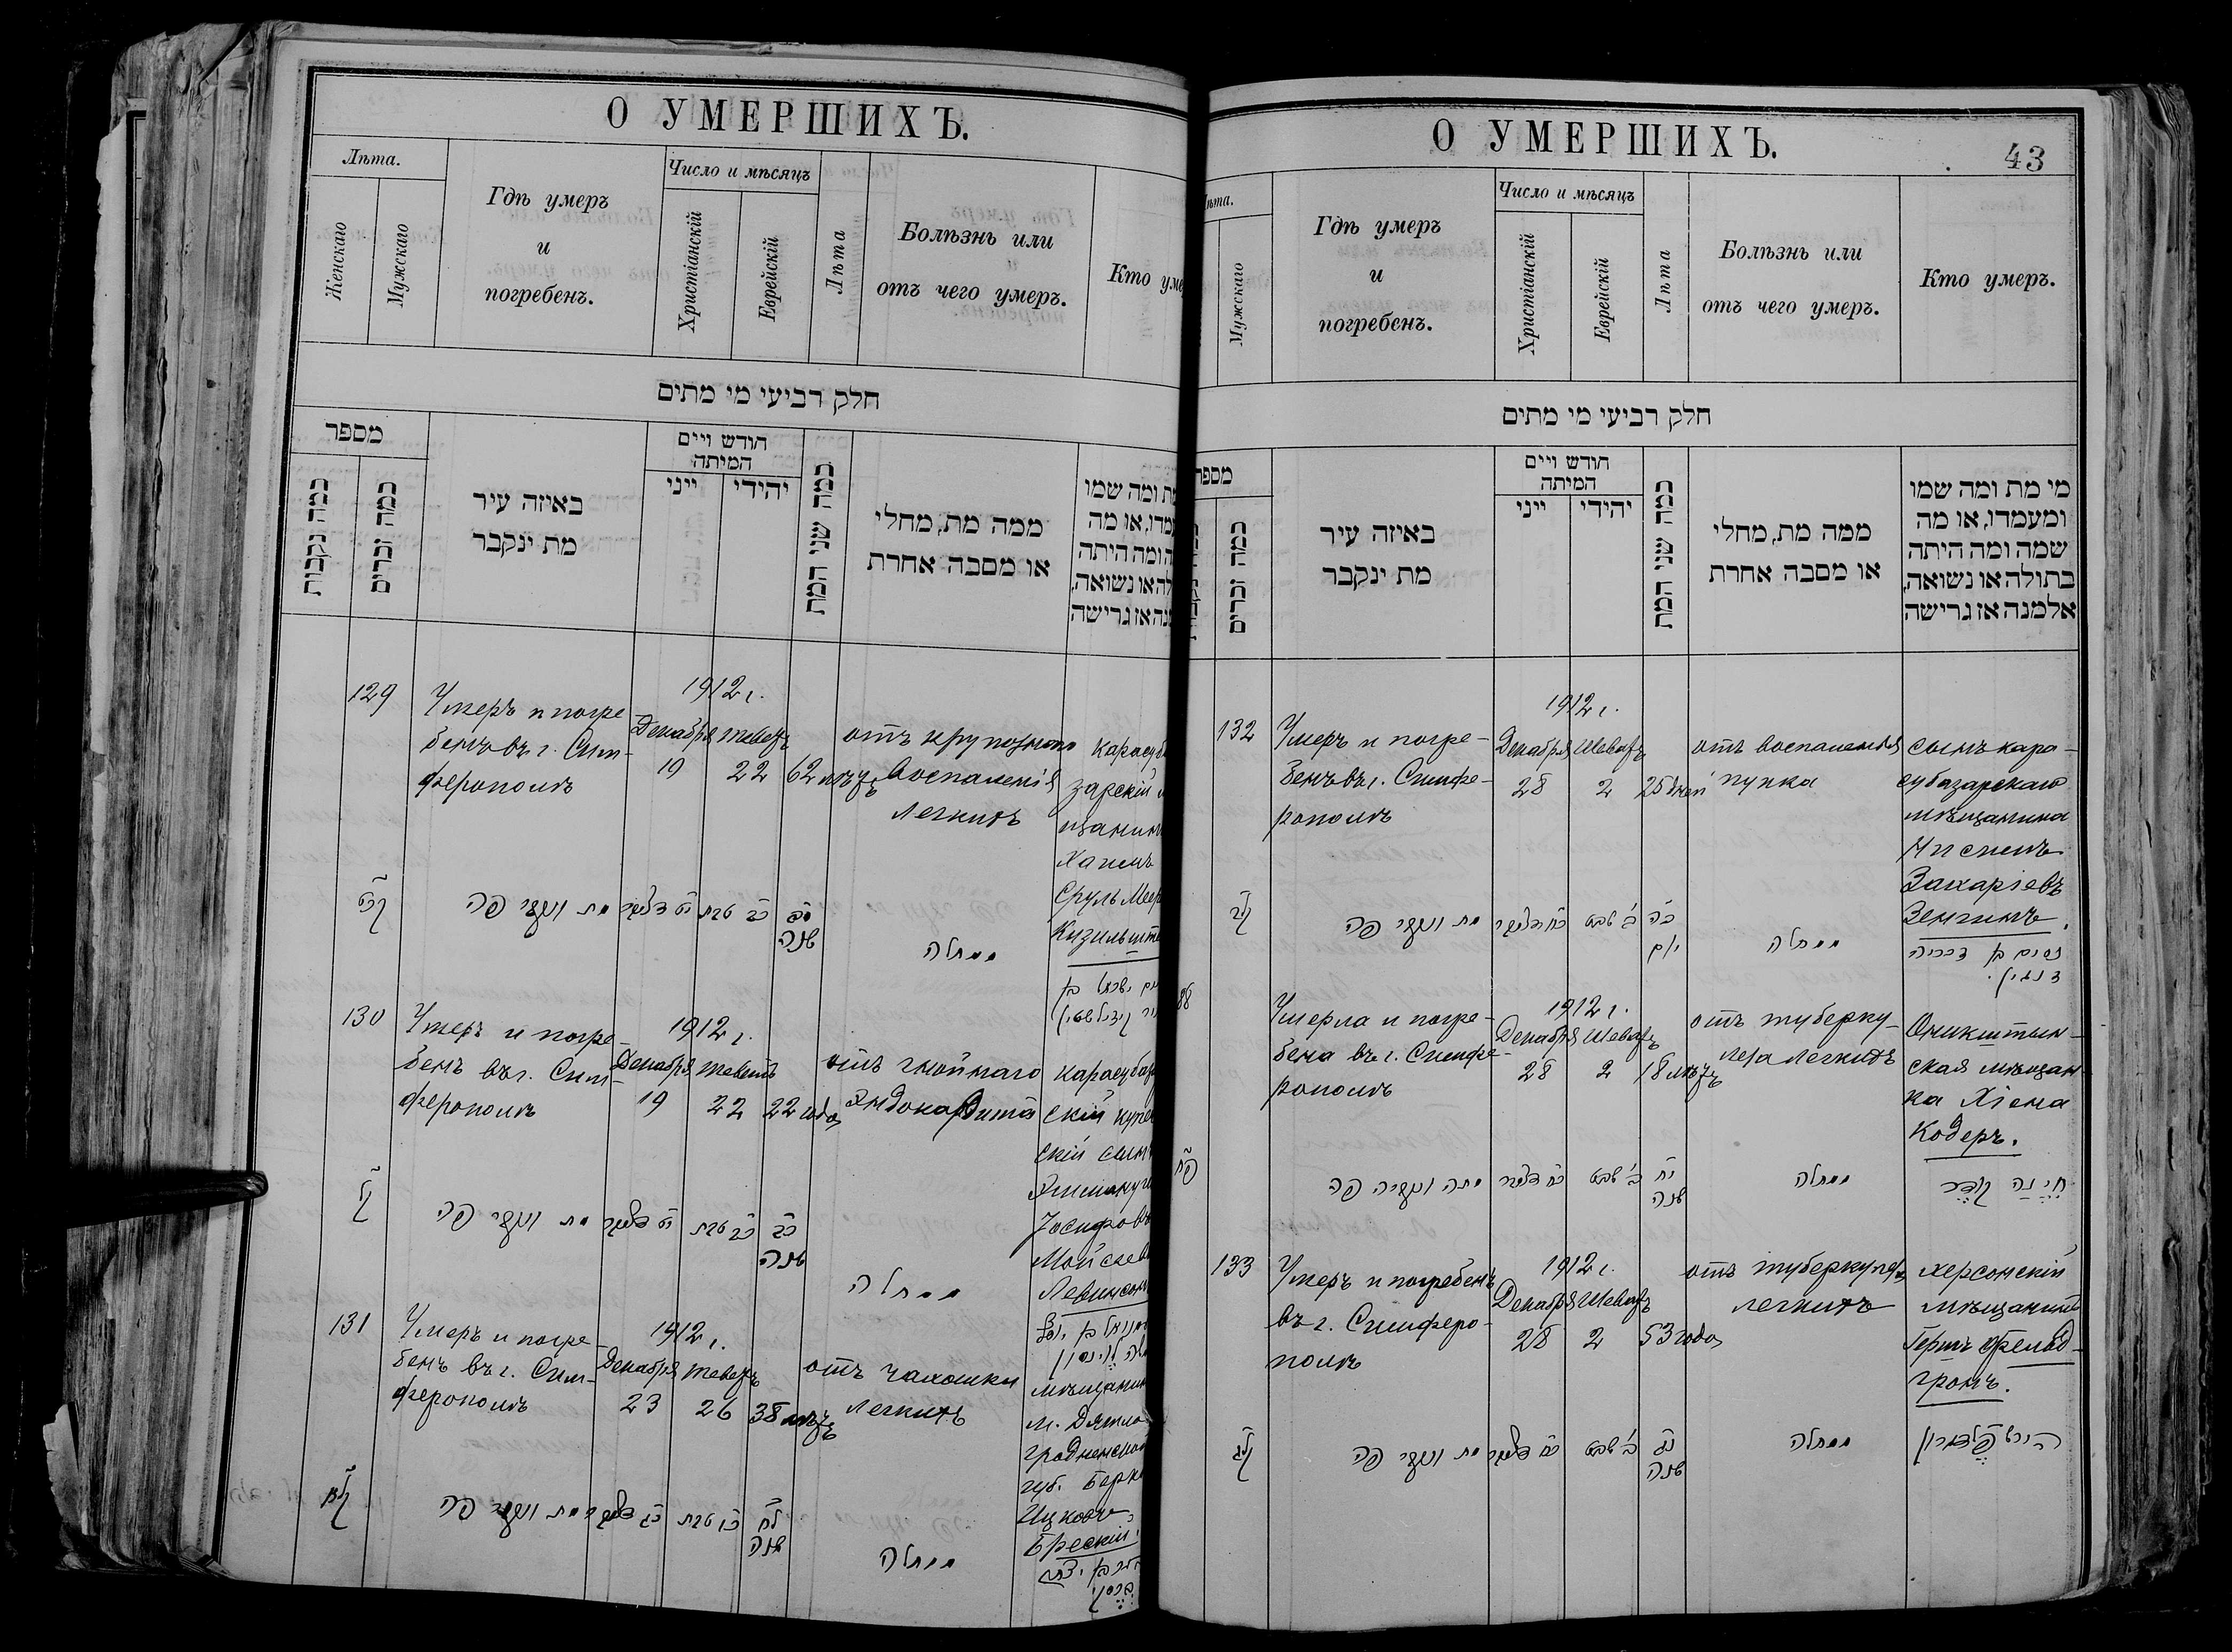 О УМЕРШИХЪ.
Лѣта.
Женскаго
Мужскаго
Гдѣ умеръ
и
погребенъ.
Число и мѣсяцъ
Христіанскій
Еврейскій
Лѣта
Болѣзнь или
отъ чего умеръ.
Кто уме
חלק רביעי מי מתים
מספר
כמה נקבות
כמה זכרים
באיזה עיר
מת ינקבר
חודש ויים
המיתה
ייני
יהודי
כמה שני המת
ממה מת, מחלי
או מסבה אחרת
ת ומה שמו
מדו, או מה
ה ומה היתה
לה או נשואה,
נה אז גרישה
129
Умеръ и погре-
бенъ въ г. Сим-
ферополѣ
1912 г.
Декабря
19
Теветъ
22
62 лѣтъ
отъ крупознаго
воспаленія
легкихъ
карасуб
зарскій м
щанинъ
Хаимъ
Сруль Меер
Кизильште
קכט
מת ונקבר פה
יט דצמבר
כב טבת
סב
שנה
ממחלה
ים ישראל בן
יר קיזילשטיין
130
Умеръ и погре-
бенъ въ г. Сим-
ферополѣ
1912 г.
Декабря
19
Теветъ
22
22 года
отъ гнойнаго
эндокардита
карасубаз
скій купе
скій сынъ
Эммануи
Іосифовъ
Мойсеев
Левинсонъ
קל
מת ונקבר פה
יט דצמבר
כב טבת
כב
שנה
ממחלה
131
Умеръ и погре-
бенъ въ г. Сим-
ферополѣ
1912 г.
Декабря
23
Теветъ
26
38 лѣтъ
отъ чахотки
легкихъ
мѣщанин
м. Дятло
гродненской
губ. Берко
Ицковъ
Брескій
קלא
מת ונקבר פה
כג דצמבר
כו טבת
לח
שנה
ממחלה
О УМЕРШИХЪ.
43
ѣта.
Мужскаго
Гдѣ умеръ
и
погребенъ.
Число и мѣсяцъ
Христіанскій
Еврейскій
Лѣта
Болѣзнь или
отъ чего умеръ.
Кто умеръ.
חלק רביעי מי מתים
מספר
כמה זכרים
באיזה עיר
מת ינקבר
חודש ויים
המיתה
ייני
יהודי
כמה שני המת
ממה מת, מחלי
או מסבה אחרת
מי מת ומה שמו
ומעמדו, או מה
שמה ומה היתה
בתולה או נשואה,
אלמנה אז גרישה
132
Умеръ и погре-
бенъ въ г. Симфе-
рополѣ
1912 г.
Декабря
28
Шеватъ
2
25 дней
отъ воспаленія
пупка
сынъ кара-
субазарскаго
мѣщанина
Ниссимъ
Захаріевъ
Зенгинъ.
קלב
מת ונקבר פה
כח דצמבר
ב' שבט
כה
יום
ממחלה
נסים בן זכריה
זנגין.
88
Умерла и погре-
бена въ г. Симфе-
рополѣ
1912 г.
Декабря
28
Шеватъ
2
18 лѣтъ
отъ туберку-
леза легкихъ
Оникштын-
ская мѣщан-
ка Хіена
Кодеръ.
פח
מתה ונקברה פה
כח דצמבר
ב' שבט
יח
שנה
ממחלה
חיינה קדר
133
Умеръ и погребенъ
въ г. Симферо-
полѣ
1912 г.
Декабря
28
Шеватъ
2
53 года
отъ туберкулеза
легкихъ
херсонскій
мѣщанинъ
Гершъ Фельд-
гронъ.
קלג
מת ונקבר פה
כח דצמבר
ב' שבט
נג
שנה
ממחלה